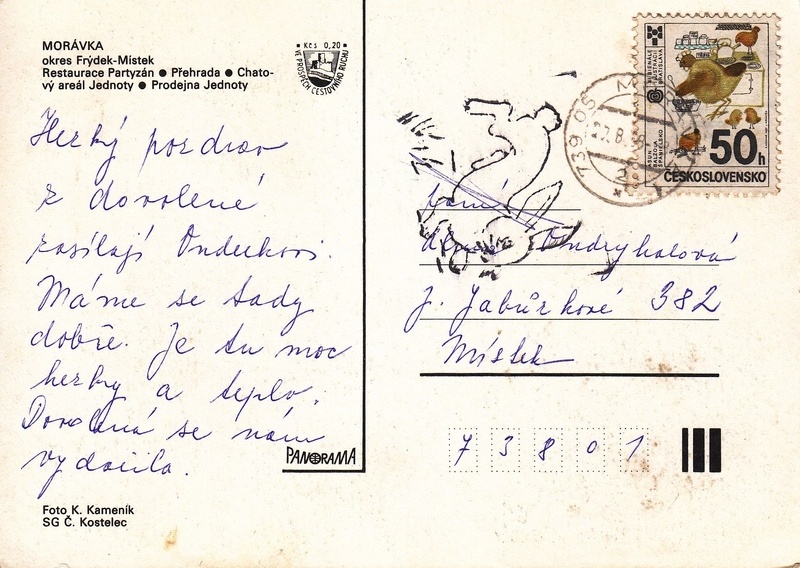 MORÁVKA
okres Frýdek-Místek
Restaurace Partyzán ● Přehrada ● Chato-
vý areál Jednoty ● Prodejna Jednoty
Kčs 0,20
VE PROSPĚCH CESTOVNÍHO RUCHU
Hezký pozdrav
z dovolené
zasílají Onderkovi.
Máme se tady
dobře. Je tu moc
hezky a teplo.
Dovolená se nám
vydařila.
PANORAMA
Foto K. Kameník
SG Č. Kostelec
739 05
50h
ČESKOSLOVENSKO
BRATISLAVA
Ondryhalová
J. Jabůrkové 382
Místek
73801